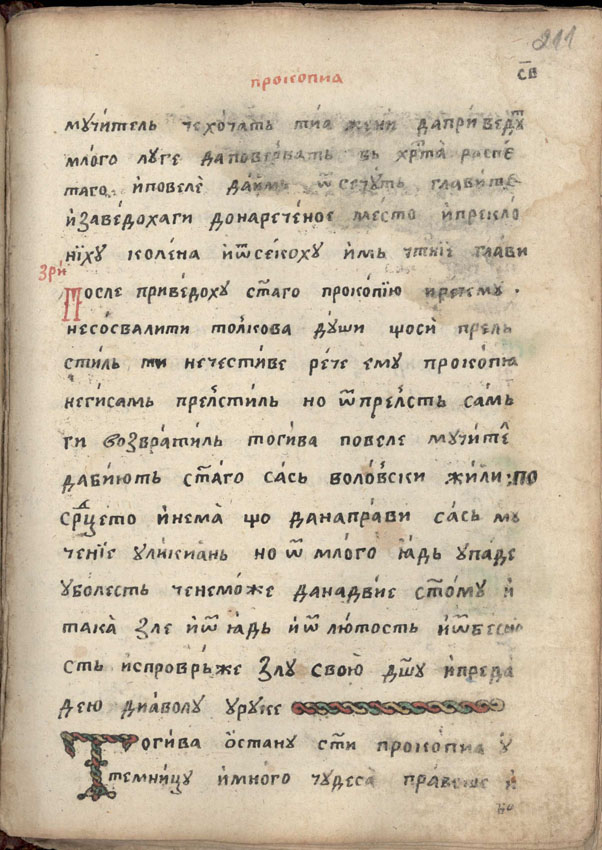 211
прокопиа
с҃в
мꙋчитель че хо́чатъ тиа жени да приведꙋтъ
мло́го лꙋге да поверꙋватъ въ хр҇та̀ распе́
таго. и҆ повелѐ да и҆мь ѿсечꙋ́тъ главите
и҆ заведохаги до нарече́ное место и҆прекло́
ни́хꙋ коле́на и҆ ѿсе́кохꙋ и҆мь чт҇ніе глави
зри
После приве́дохꙋ ст҃аго проко́пїю и҆рече мꙋ.
не со́свалити то́лкова дꙋ́ши що си прель
стиль ти нечести́ве рече емꙋ прокопїа
не ги самь преле҇стиль но ѿ преле҇сть самь
ги возврати́ль тоги́ва повеле мꙋчите́л
да бию́ть ст҃аго сась воло́вски жи́ли; по
срд҇цето и҆ не́ма̀ що да напра́ви сась мꙋ
че́нїе ꙋликиань но ѿ мло́го ꙗдь ꙋпаде
ꙋ болесть че не може да надви́е ст҃омꙋ и҆
така̀ зле и҆ ѿ ꙗдь и҆ ѿ лю́тость и҆ ѿ бесно
сть испроврьже злꙋ свою дш҃ꙋ и҆ преда
дею диа́волꙋ ꙋ рꙋке
Тоги́ва о҆станꙋ ст҃и прокопиа ꙋ҆
темницꙋ и҆много чꙋдеса̀ пра́веше и҆
но